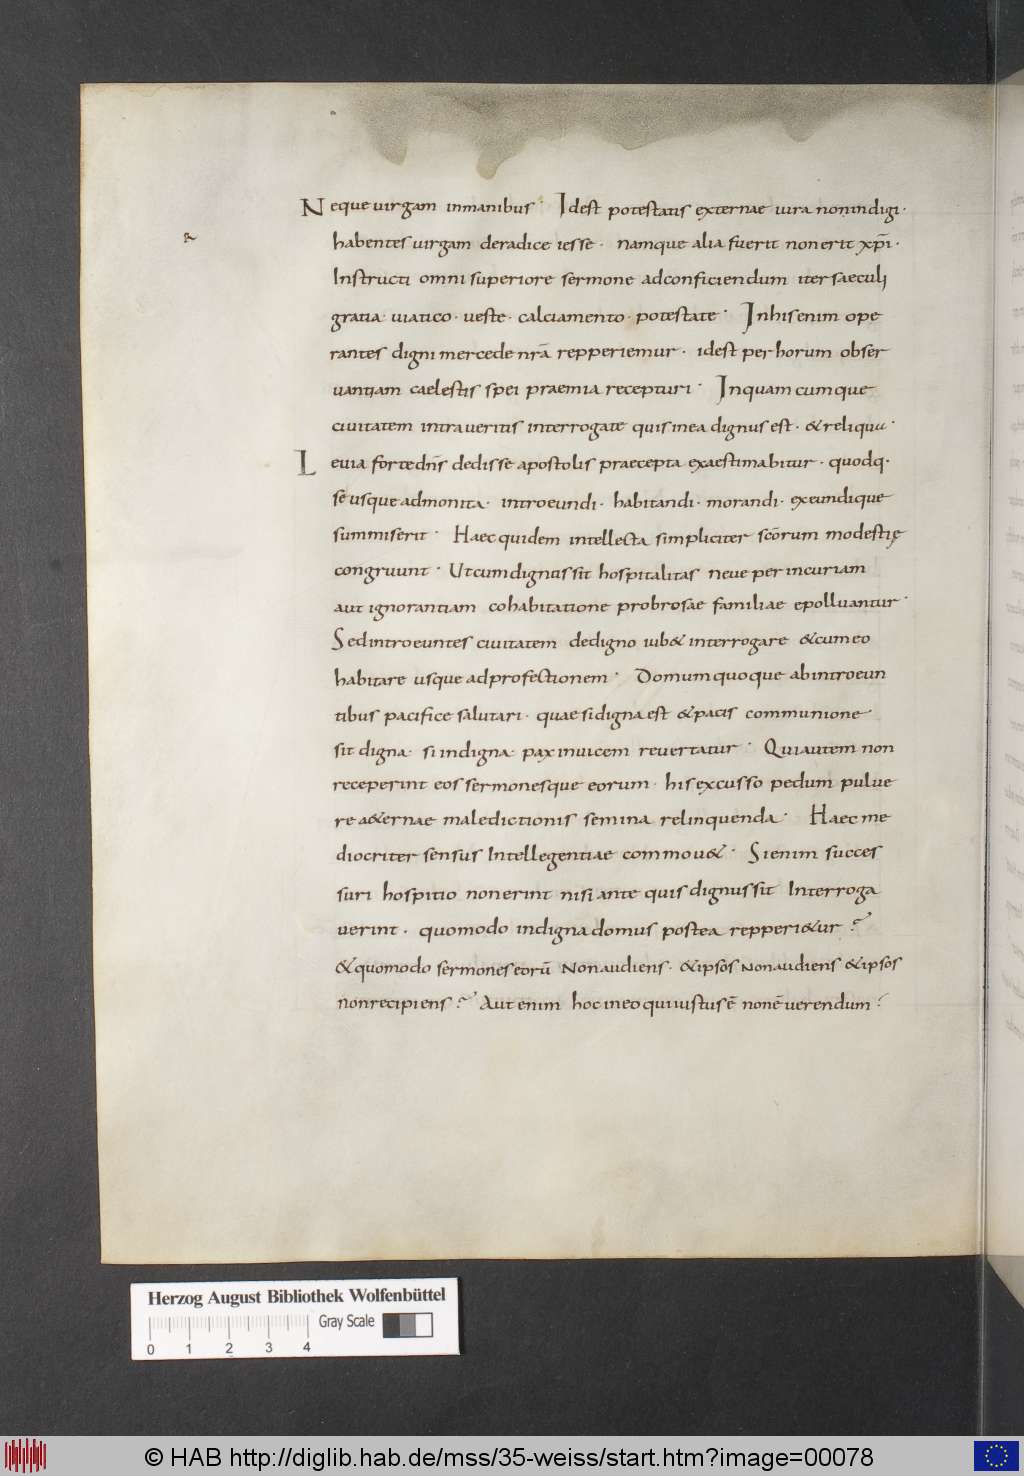 Neque virgam inmanibus · Idest potestatis externae iura nonindigi ·
habentes virgam deradice iesse · namque alia fuerit non erit xp̄i ·
Instructi omni superiore sermone adconficiendum iter saeculi
gratia · uiatico · ueste · calciamento · potestate · Inhis enim ope
rantes digni mercede nr̄a repperiemur · idest per horum obser
uantiam caelestis spei praemia recepturi · Inquamcumque
ciuitatem intraueritis interrogate quis inea dignus est · & reliqua ·
Leuia forte dn̄s dedisse apostolis praecepta exaestimabitur · quodq·
se usque admonita · introeundi · habitandi · morandi · exeundique
summiserit · Haec quidem intellecta simpliciter sc̄orum modestię
congruunt · Ut cum dignus sit hospitalitas neue per incuriam
aut ignorantiam cohabitatione probrosae familiae epolluantur ·
Sed introeuntes ciuitatem dedigno iub& interrogare & cum eo
habitare usque adprofectionem · Domum quoque ab introeun
tibus pacifice salutari · quae si digna est & pacis communione
sit digna · si indigna · pax inuicem reuertatur · Qui autem non
receperint eos sermonesque eorum · his excusso pedum pulue
re a&ernae maledictionis semina relinquenda · Haec me
diocriter sensus Intellegentiae commou& · Si enim succes
suri hospitio non erint nisi ante quis dignus sit Interroga
uerint · quomodo indigna domus postea repperi&ur ?
& quomodo sermones eorū Non audiens · & ipsos Non audiens & ipsos
non recipiens ? Aut enim hoc in eo qui iustus ē non ē uerendum ?
Herzog August Bibliothek Wolfenbüttel
Gray Scale
0 1 2 3 4
© HAB http://diglib.hab.de/mss/35-weiss/start.htm?image=00078